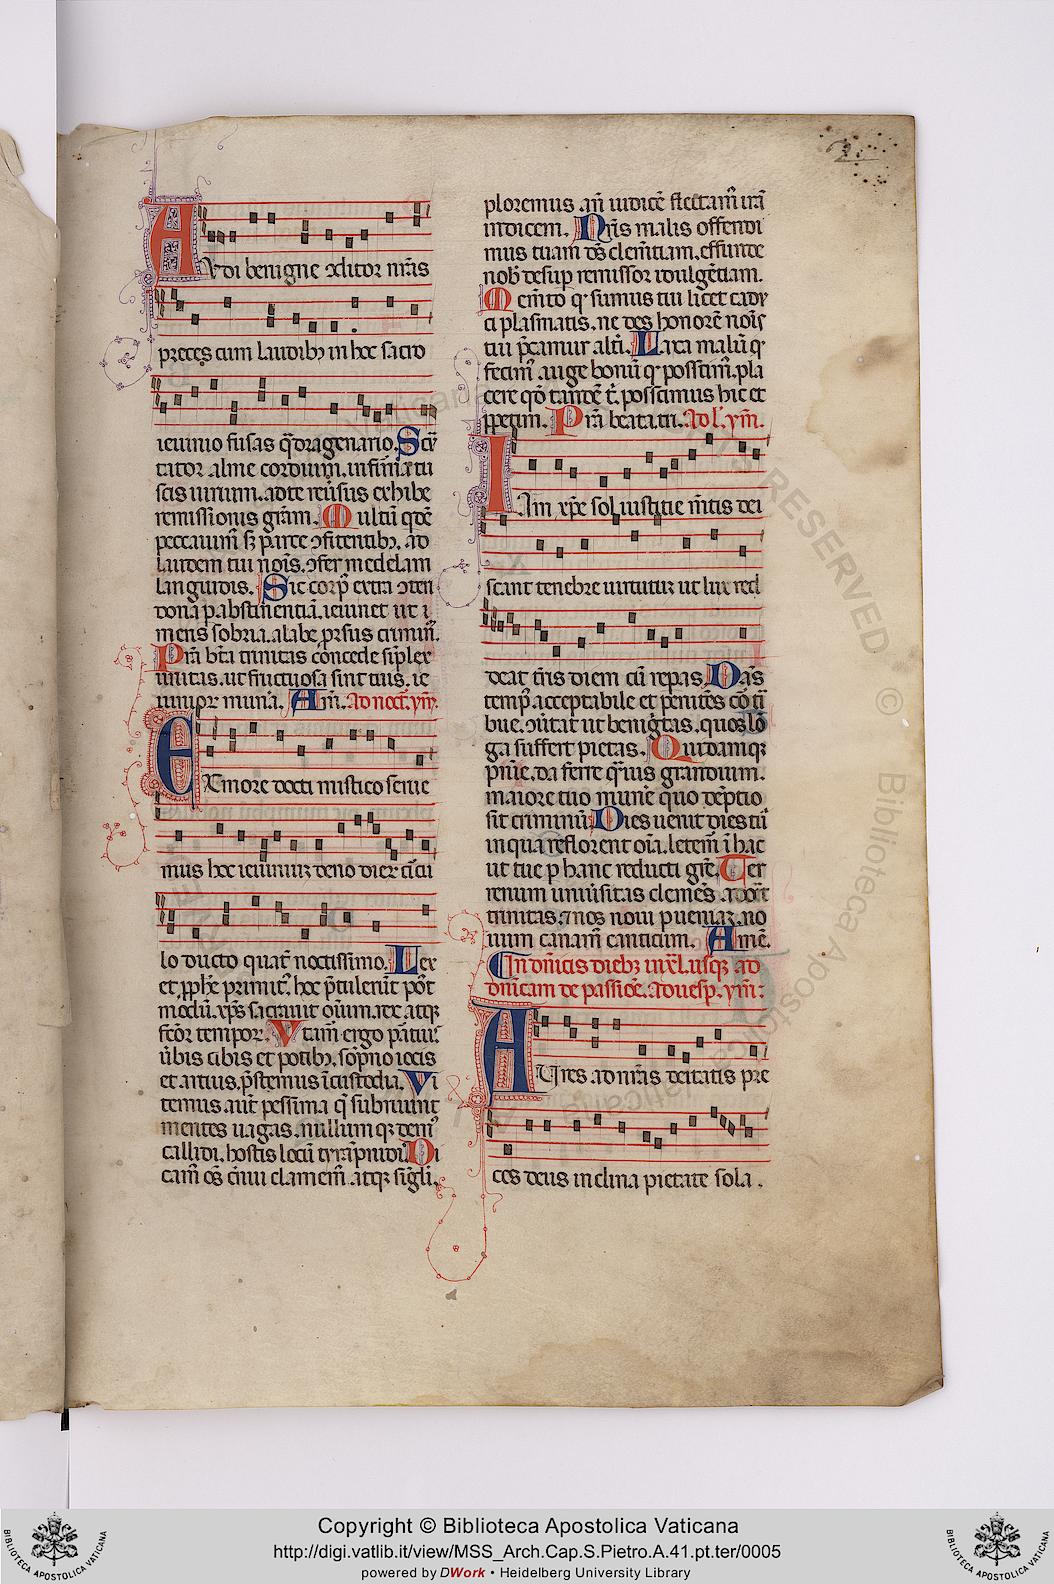 2
Avdi benigne ↄditor nr̄as
preces cum laudibȝ in hoc sacro
ieiunio fusas q̄dragenario. Scr̄
tator alme cordium. infirma tu
scis uirium. ad te reūsus exhibe
remissionis gr̄am. Multū q̄dē
peccauim̄ sȝ parce ↄfitentibȝ. ad
laudem tui noīs. ↄfer medelam
languidis. Sic corpꝰ extra ↄteri
dona p abstinentiā. ieiunet ut a
mens sobria. a labe prsus crimīn.
Pr̄a bt̄a trinitas concede simplex
unitas. ut fructuosa sint tuis. ie
iunior munā. Am̄. Ad noct. ym̄.
Ex more docti mistico serue
mus hoc ieiuniuȝ deno dierꝝ circu
lo ducto quat̄ notissimo. Lex
et pph̄e primitꝰ. hoc p̄tulerūt pꝰt
modū. xp̄s sacrauit oīum. rex atqȝ
fc̄or temporꝝ. Vtam̄ ergo p̄atiuꝰ
ūbis cibis et potibȝ. sopno iocis
et artius. p̄stemus ī custodia. Vi
temus aut̄ pessima q̄ subruunt
mentes uagas. nullum qȝ demꝰ
callidi. hostis locū tyrapnidis. Di
cam̄ os̄ cernui clamem̄ atqȝ sigl̄i.
ploremus an̄ iudicē flectam̄ irā
uindicem. Nr̄is malis offendi
mus tuam ds̄ clem̄tiam. effunde
nob̄ desup remissor indulgētiam.
Mem̄to qꝰ sumus tui licet cadu
ci plasmatis. ne des honorē noīs
tui p̄camur altī. Laxa malū qꝰ
fecim̄ auge bonū qꝰ poscim̄. pla
cere qꝰ tandē t̄. possimus hic et
ppetim. Pr̄a beata tri. Ad l. ym̄.
Iam xp̄e sol iustitie m̄tis dei
scant tenebre uirtutuȝ ut lux red
deat tr̄is diem cū repas. Das̄
tempꝰ acceptabile et penitēs cor tri
bue. ↄūtat ut benigītas. quos lō
ga suffert pietas. Quidamqȝ
pnīe. da ferre qᵃuis grandium.
maiore tuo munē quo dēptio
sit criminū. Dies uenit dies tua
in qua reflorent oīa. letem̄ ī hac
ut tue p hanc reducti grē. Ter
renum uniūsitas clemēs adoret
trinitas. ⁊ nos noui p ueniaȝ. no
uum canam̄ canticum. Amē.
In dn̄icis diebȝ in xl. usqȝ ad
dn̄icam de passiōe. ad uesp. ym̄:
Aures ad nr̄as deitatis pre
ces deus inclina pietate sola.
Copyright © Biblioteca Apostolica Vaticana
http://digi.vatlib.it/view/MSS_Arch.Cap.S.Pietro.A.41.pt.ter/0005
powered by DWork • Heidelberg University Library
BIBLIOTECA APOSTOLICA VATICANA
BIBLIOTECA APOSTOLICA VATICANA